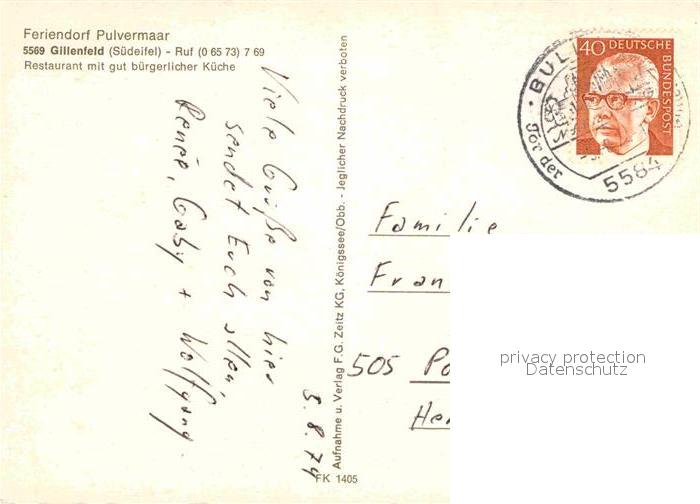 Feriendorf Pulvermaar
5569 Gillenfeld (Südeifel) - Ruf (0 65 73) 7 69
Restaurant mit gut bürgerlicher Küche
Viele Grüße von hier
sendet Euch allen,
Renée, Gaby + Wolfgang
5.8.74
Aufnahme u. Verlag F.G. Zeitz KG, Königssee/Obb. - Jeglicher Nachdruck verboten
FK 1405
40 DEUTSCHE
BUNDESPOST
BUL
Tor der
5584
Familie
Fran
505 Po
He
privacy protection
Datenschutz